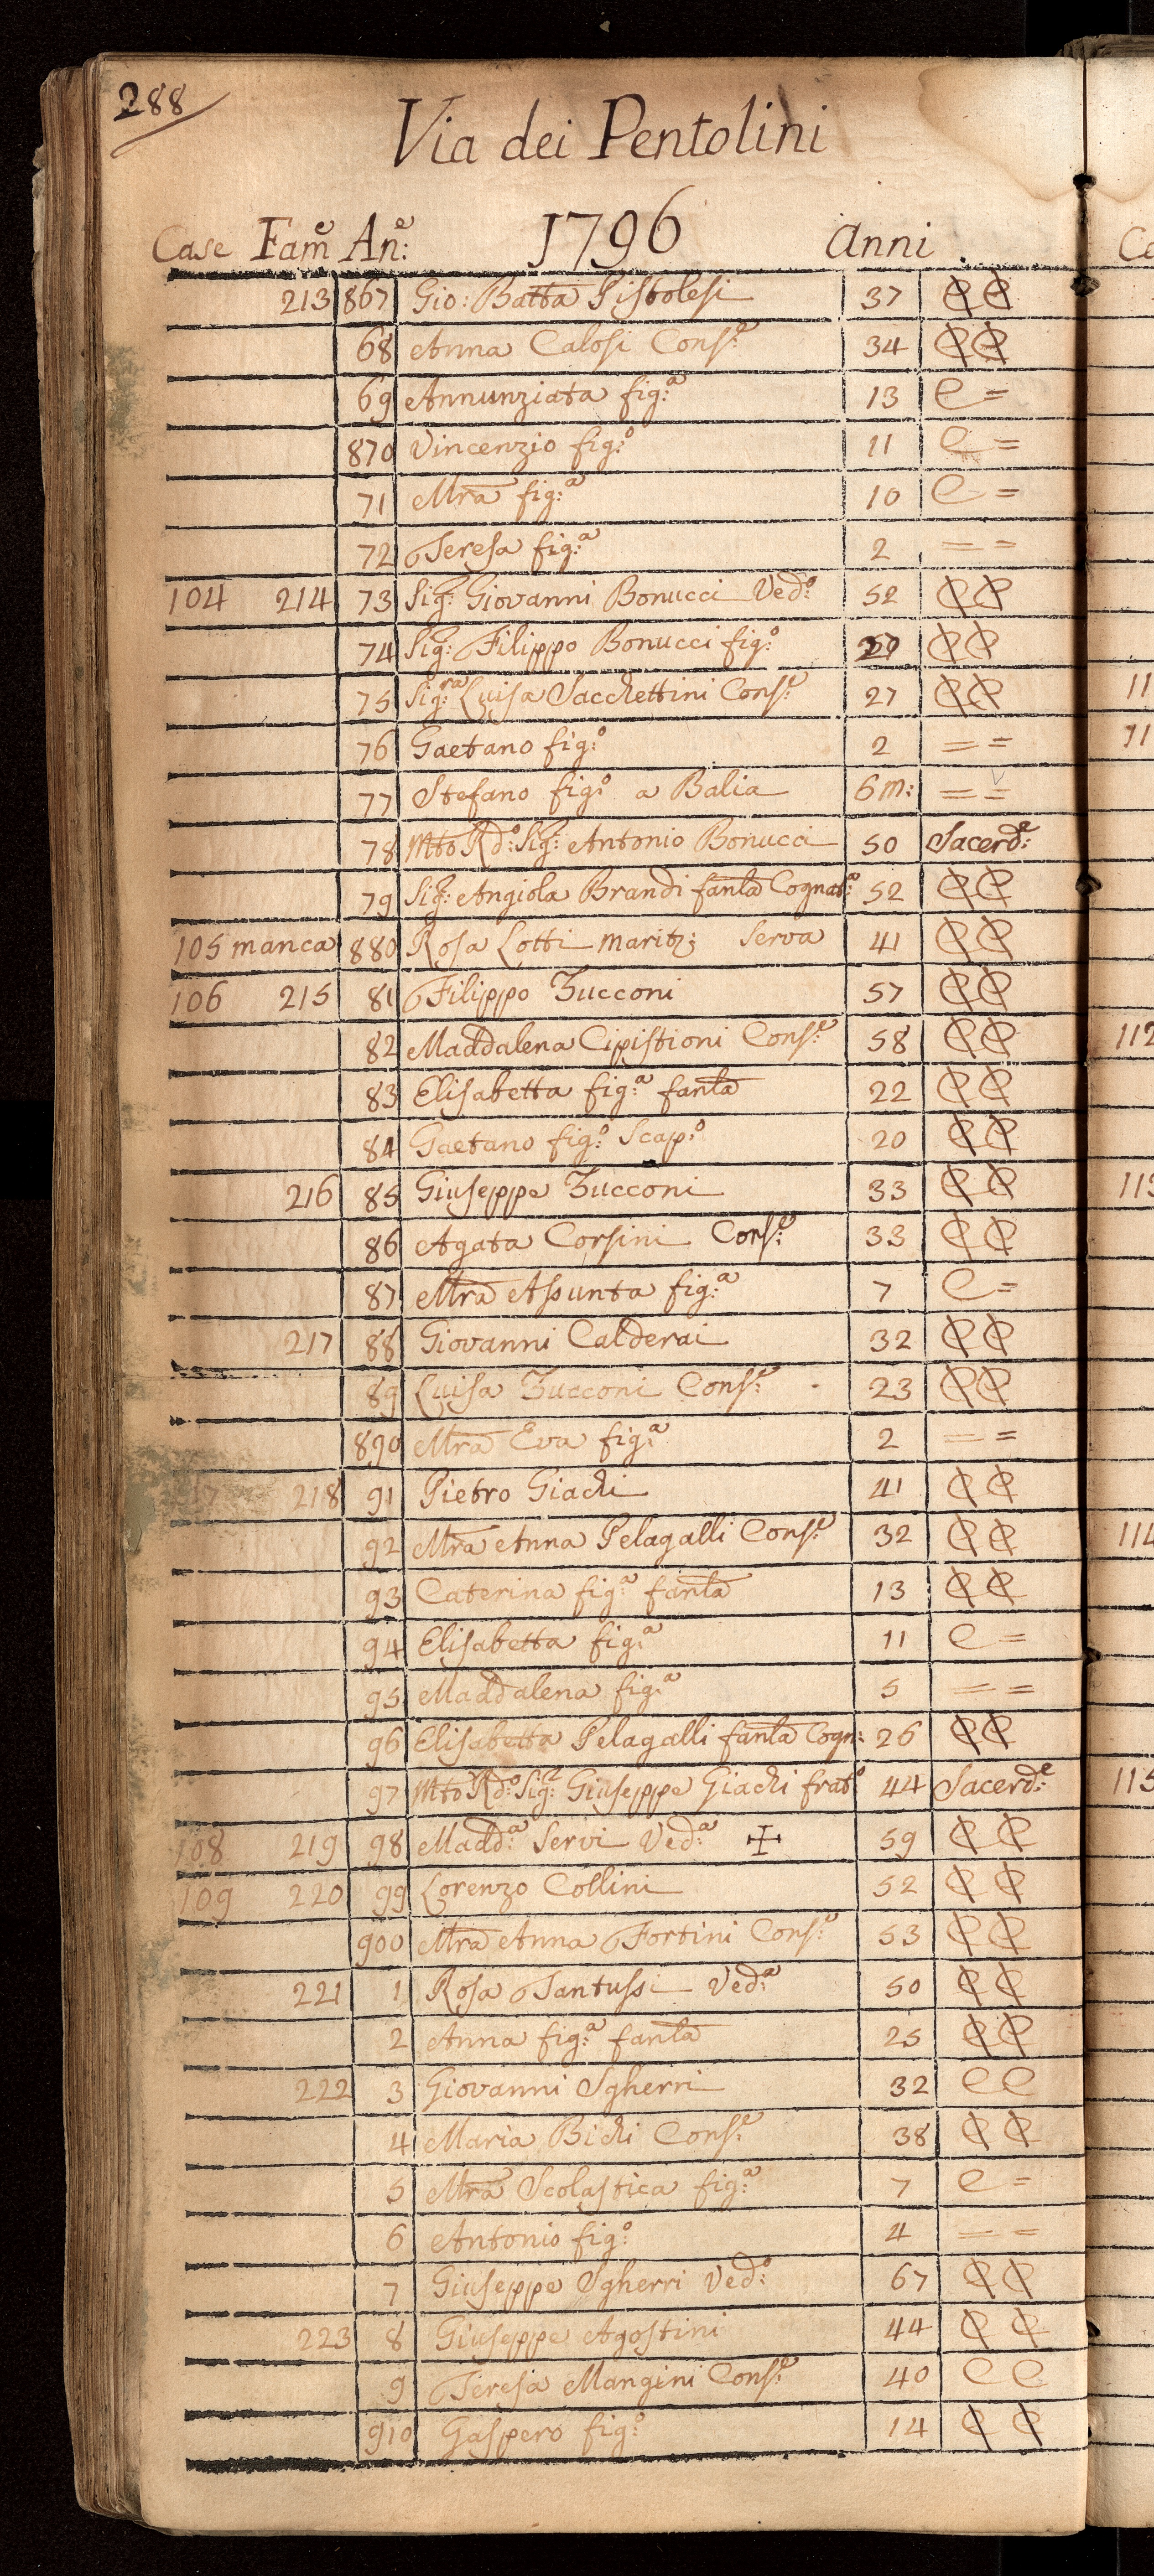 288
Via dei Pentolini
Case Fam.e An.e: 1796 Anni
213 867 Gio: Batta Pistolesi 37 C C
68 Anna Calosi Cons.e 34 C C
69 Annunziata fig.a 13 C =
870 Vincenzio fig.o 11 C =
71 Mra fig.a 10 C =
72 Teresa fig.a 2 = =
104 214 73 Sig.r Giovanni Bonucci Ved.o 52 C C
74 Sig.r Filippo Bonucci fig.o C C
75 Sig.ra Luisa Sacchettini Cons.e 27 C C
76 Gaetano fig.o 2 = =
77 Stefano fig.o a Balia 6 m: = =
78 Mto Rd.o Sig.r Antonio Bonucci 50 Sacerd.e
79 Sig.ra Angiola Brandi fanla Cognat.a 52 C C
105 manca 880 Rosa Lotti maritz; Serva 41 C C
106 215 81 Filippo Zucconi 57 C C
82 Maddalena Cipistioni Cons.e 58 C C
83 Elisabetta fig.a fanla 22 C C
84 Gaetano fig.o Scap.o 20 C C
216 85 Giuseppe Zucconi 33 C C
86 Agata Corsini Cons.e 33 C C
87 Mra Assunta fig.a 7 C =
217 88 Giovanni Calderai 32 C C
89 Luisa Zucconi Cons.e 23 C C
890 Mra Eva fig.a 2 = =
218 91 Pietro Giachi 41 C C
92 Mra Anna Pelagalli Cons.e 32 C C
93 Caterina fig.a fanla 13 C C
94 Elisabetta fig.a 11 C =
95 Maddalena fig.a 5 = =
96 Elisabetta Pelagalli fanla Cogn: 26 C C
97 Mto Rd.o Sig.r Giuseppe Giachi frat.o 44 Sacerd.e
108 219 98 Madd.a Servi Ved.a ✢ 59 C C
109 220 99 Lorenzo Collini 52 C C
900 Mra Anna Fortini Cons.e 53 C C
221 1 Rosa Tantussi Ved.a 50 C C
2 Anna fig.a fanla 25 C C
222 3 Giovanni Sgherri 32 C C
4 Maria Bichi Cons.e 38 C C
5 Mra Scolastica fig.a 7 C =
6 Antonio fig.o 4 = =
7 Giuseppe Sgherri Ved.o 67 C C
223 8 Giuseppe Agostini 44 C C
9 Teresa Mangini Cons.e 40 C C
910 Gaspero fig.o 14 C C
112
114